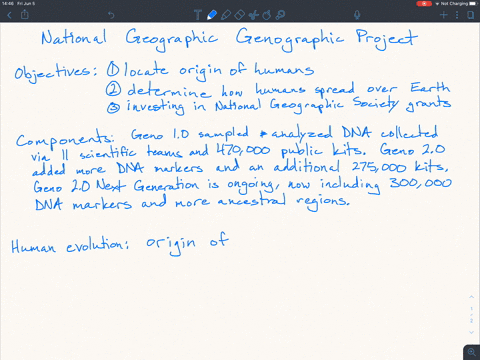 14:46 Fri Jun 5
Not Charging
T
National Geographic Genographic Project
Objectives: ① locate origin of humans
② determine how humans spread over Earth
③ investing in National Geographic Society grants
Components: Geno 1.0 sampled & analyzed DNA collected
via 11 scientific teams and 470,000 public kits. Geno 2.0
added more DNA markers and an additional 275,000 kits,
Geno 2.0 Next Generation is ongoing, now including 300,000
DNA markers and more ancestral regions.
Human evolution: origin of